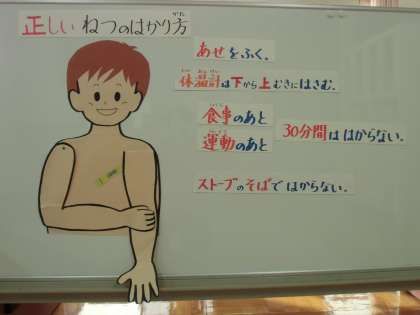 正しい ねつのはかり方
あせをふく。
体温計は下から上むきにはさむ。
食事のあと
運動のあと
30分間は はからない。
ストーブのそばで はからない。